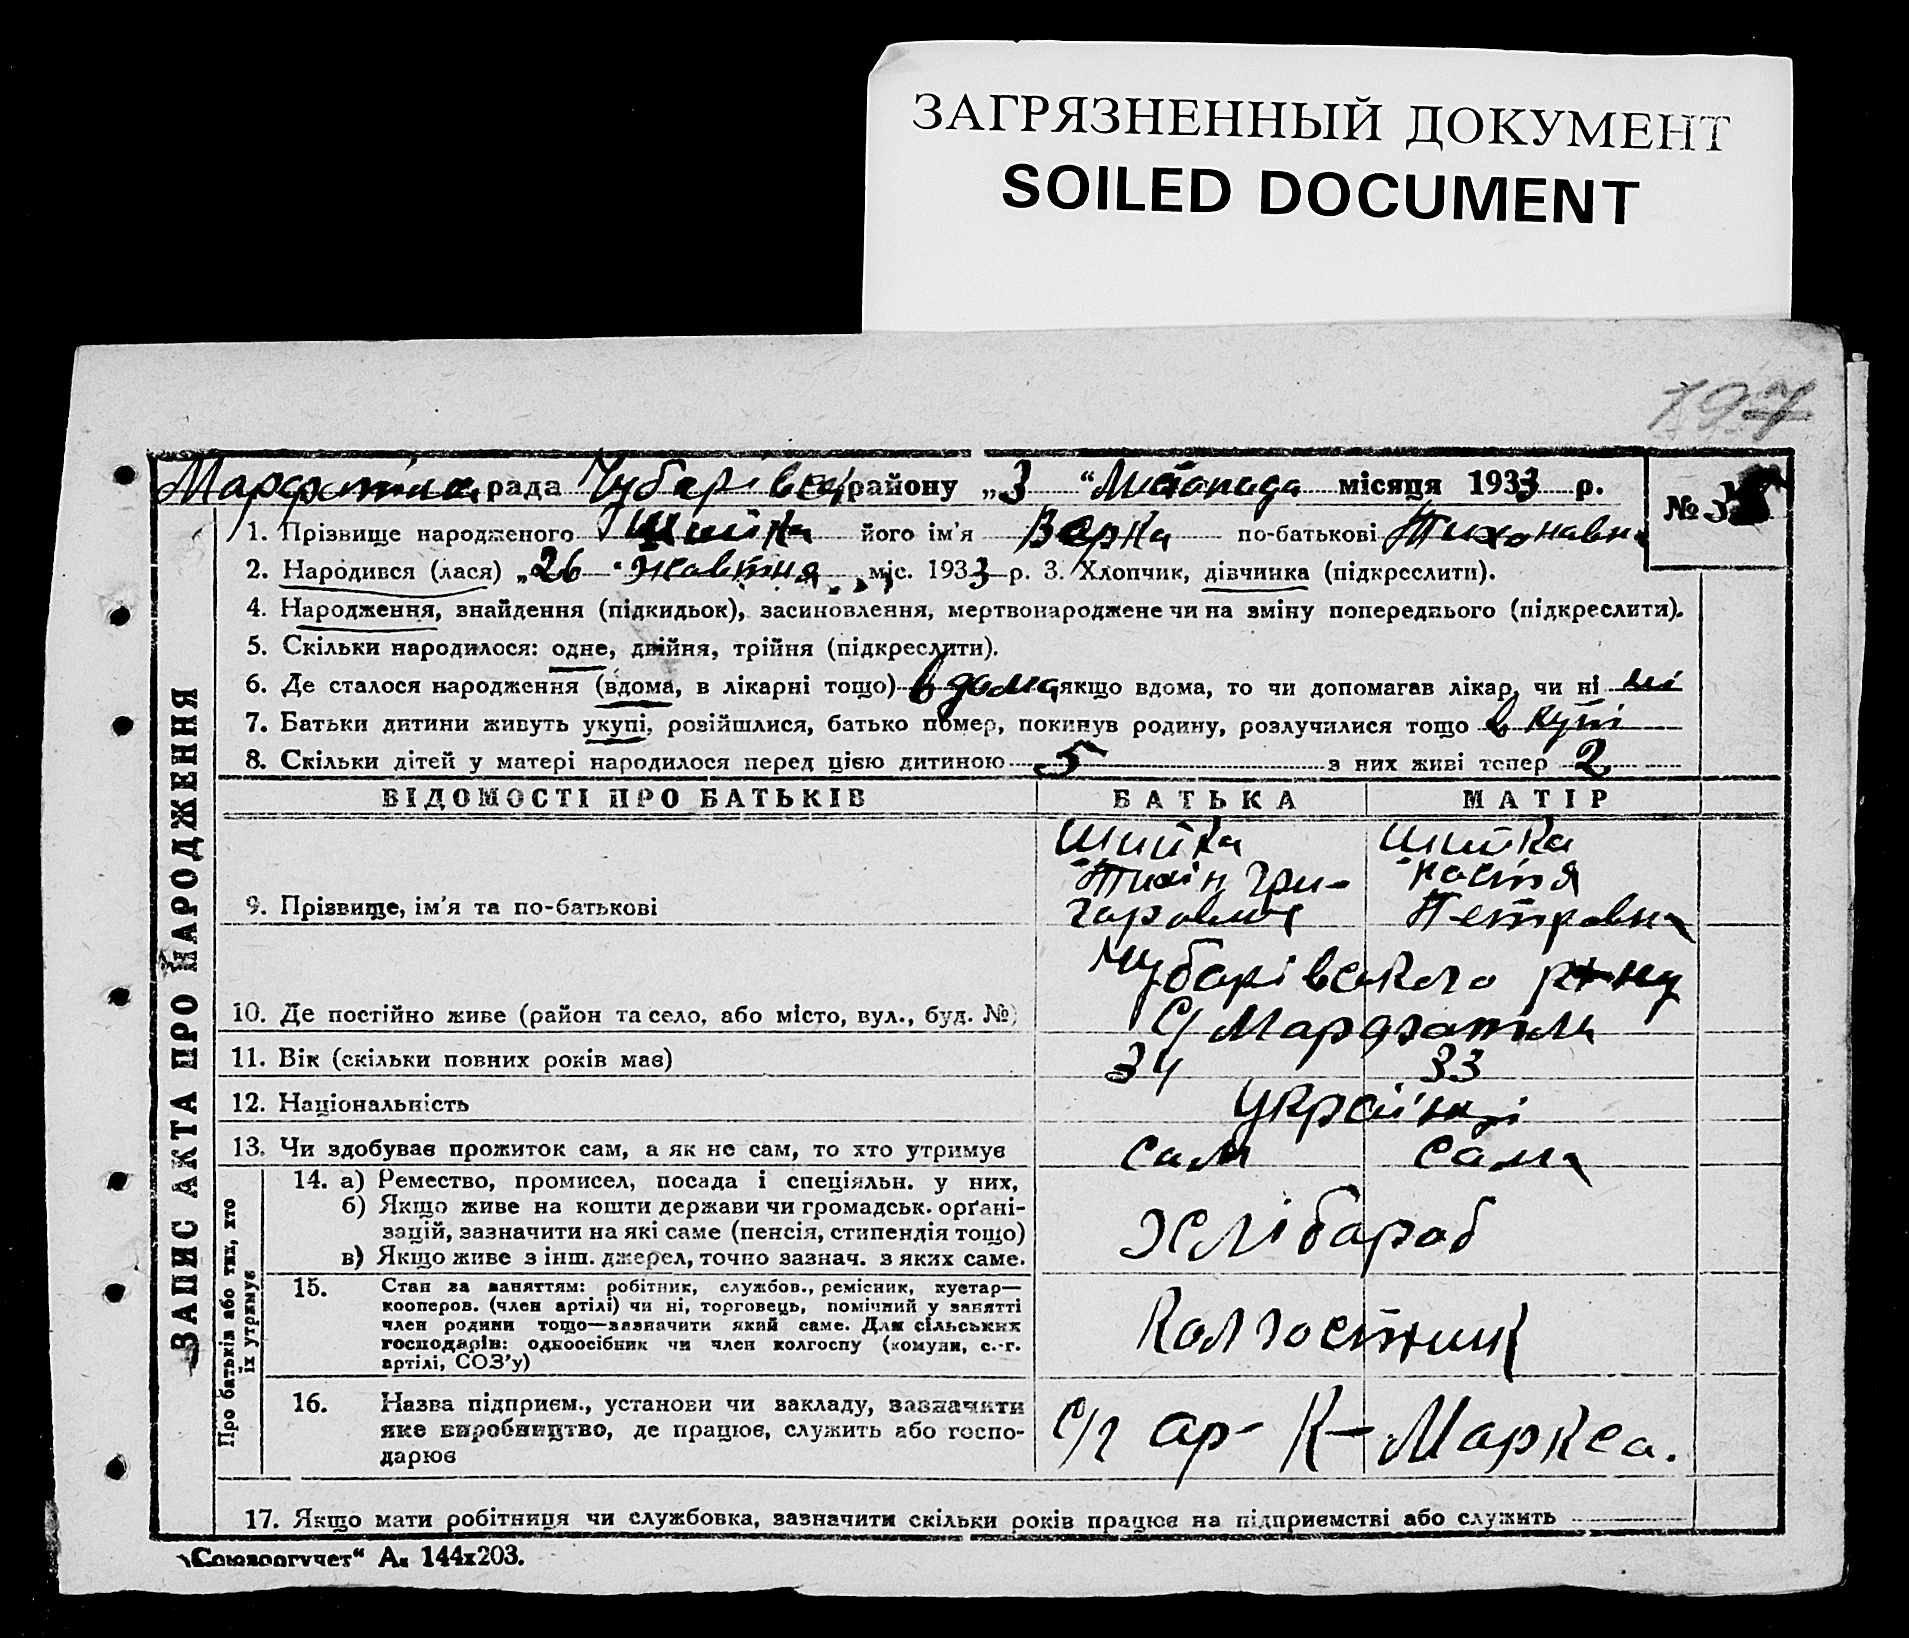 ЗАГРЯЗНЕННЫЙ ДОКУМЕНТ
SOILED DOCUMENT
197
Марфопіль рада Чубарівськ району „3 “ Листопада місяця 1933 р.
№
ЗАПИС АКТА ПРО НАРОДЖЕННЯ
1. Прізвище народженого Шийка його ім'я Верка по-батькові Тихонавна
2. Народився (лася) „26 “ жовтня міс. 1933 р. 3. Хлопчик, дівчинка (підкреслити).
4. Народження, знайдення (підкидьок), засиновлення, мертвонароджене чи на зміну попереднього (підкреслити).
5. Скільки народилося: одне, двійня, трійня (підкреслити).
6. Де сталося народження (вдома, в лікарні тощо) в дома, якщо вдома, то чи допомагав лікар, чи ні ні
7. Батьки дитини живуть укупі, розійшлися, батько помер, покинув родину, розлучилися тощо в купі
8. Скільки дітей у матері народилося перед цією дитиною 5 з них живі тепер 2
ВІДОМОСТІ ПРО БАТЬКІВ БАТЬКА МАТІР
Шийка Шийка
Тихін Гри- Настя
9. Прізвище, ім'я та по-батькові горович Петровна
Чубарівського р-ну
10. Де постійно живе (район та село, або місто, вул., буд. №) С/ Марфопіль
11. Вік (скільки повних років має) 34 33
12. Національність Українці
13. Чи здобуває прожиток сам, а як не сам, то хто утримує сам сама
Про батьків або тих, хто
їх утримує
14. а) Ремество, промисел, посада і спеціяльн. у них,
б) Якщо живе на кошти держави чи громадськ. орґані-
зацій, зазначити на які саме (пенсія, стипендія тощо) Хлібароб
в) Якщо живе з інш. джерел, точно зазнач. з яких саме.
15. Стан за заняттям: робітник, службов., ремісник, кустар—
кооперов. (член артілі) чи ні, торговець, помічний у занятті
член родини тощо—зазначити який саме. Для сільських Колгостник
господарів: одноосібник чи член колгоспу (комуни, с.-г.
артілі, СОЗ'у)
16. Назва підприєм., установи чи закладу, зазначити
яке виробництво, де працює, служить або госпо- С/г ар- К-Маркса.
дарює
17. Якщо мати робітниця чи службовка, зазначити скільки років працює на підприємстві або служить
„Союзоргучет“ А. 144x203.